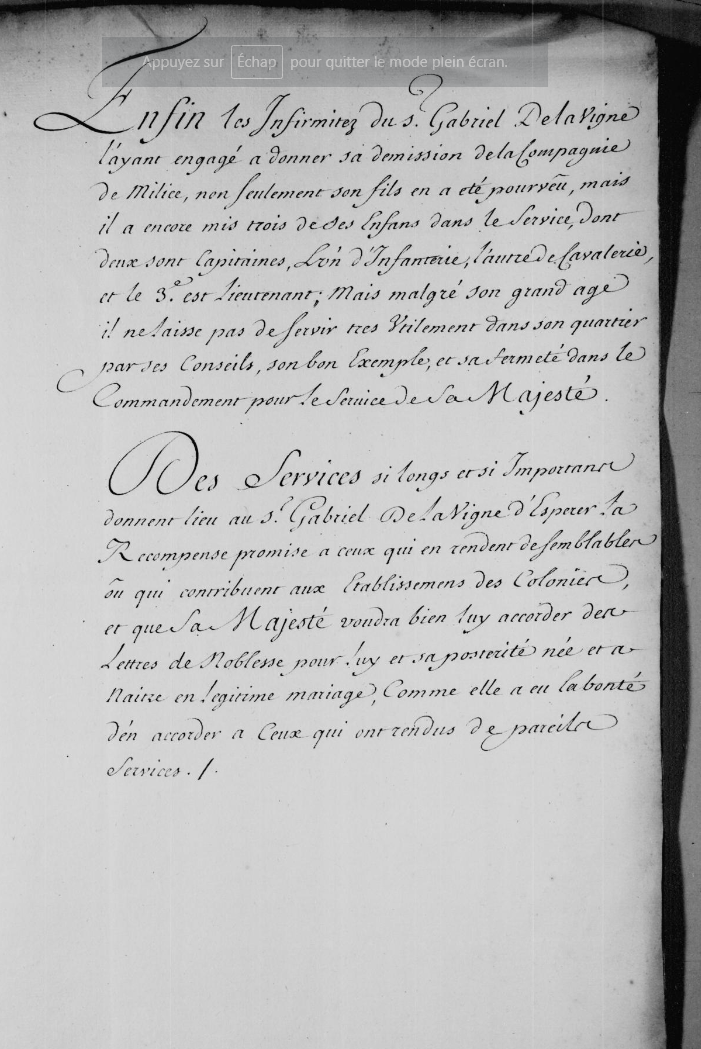 Appuyez sur Échap pour quitter le mode plein écran.
Enfin les Infirmitez du s.r Gabriel De la Vigne
l'ayant engagé a donner sa demission de la Compagnie
de Milice, non seulement son fils en a eté pourvëu, mais
il a encore mis trois de ses Enfans dans le Service, dont
deux sont Capitaines, L'vn d'Infanterie, l'autre de Cavalerie,
et le 3.e est Lieutenant; Mais malgré son grand age
il ne laisse pas de servir tres Vtilement dans son quartier
par ses Conseils, son bon Exemple, et sa fermeté dans le
Commandement pour le Service de Sa Majesté.
Des Services si longs et si Importans
donnent lieu au s.r Gabriel De la Vigne d'Esperer la
Recompense promise a ceux qui en rendent de semblables
ôu qui contribuent aux Etablissemens des Colonies,
et que Sa Majesté voudra bien luy accorder des
Lettres de Noblesse pour luy et sa posterité née et a
Naitre en legitime mariage, Comme elle a eu la bonté
d'en accorder a Ceux qui ont rendus de pareils
Services ./.